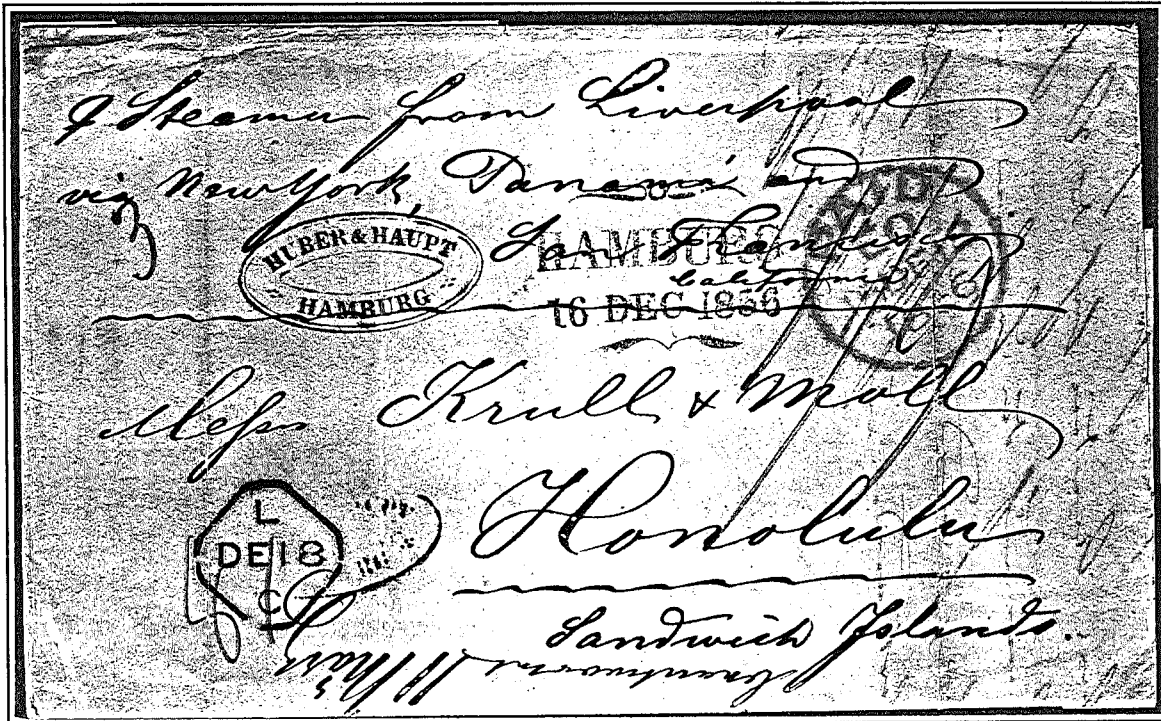 ℘ Steamer from Liverpool
via New York, Panamá and
San Francisco
California
HÜBER & HAUPT
HAMBURG
HAMBURG
16 DEC 1856
PAID
Messrs Krull & Moll
Honolulu
Sandwich Islands.
L
DE 18
C